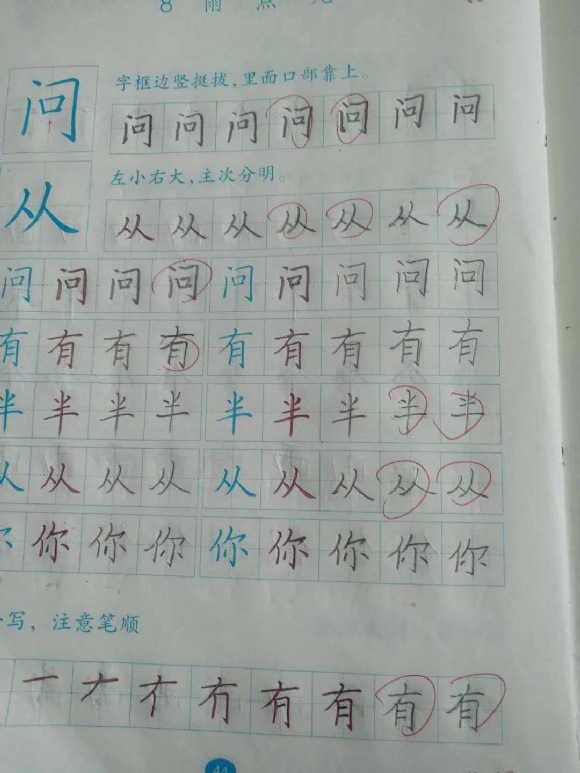 8 雨 点 儿
字框边竖挺拔,里面口部靠上。
问 问 问 问 问 问 问 问
左小右大,主次分明。
从 从 从 从 从 从 从 从
问 问 问 问 问 问 问 问 问
有 有 有 有 有 有 有 有 有
半 半 半 半 半 半 半 半 半
从 从 从 从 从 从 从 从 从
你 你 你 你 你 你 你 你
写,注意笔顺
有 有 有 有
44